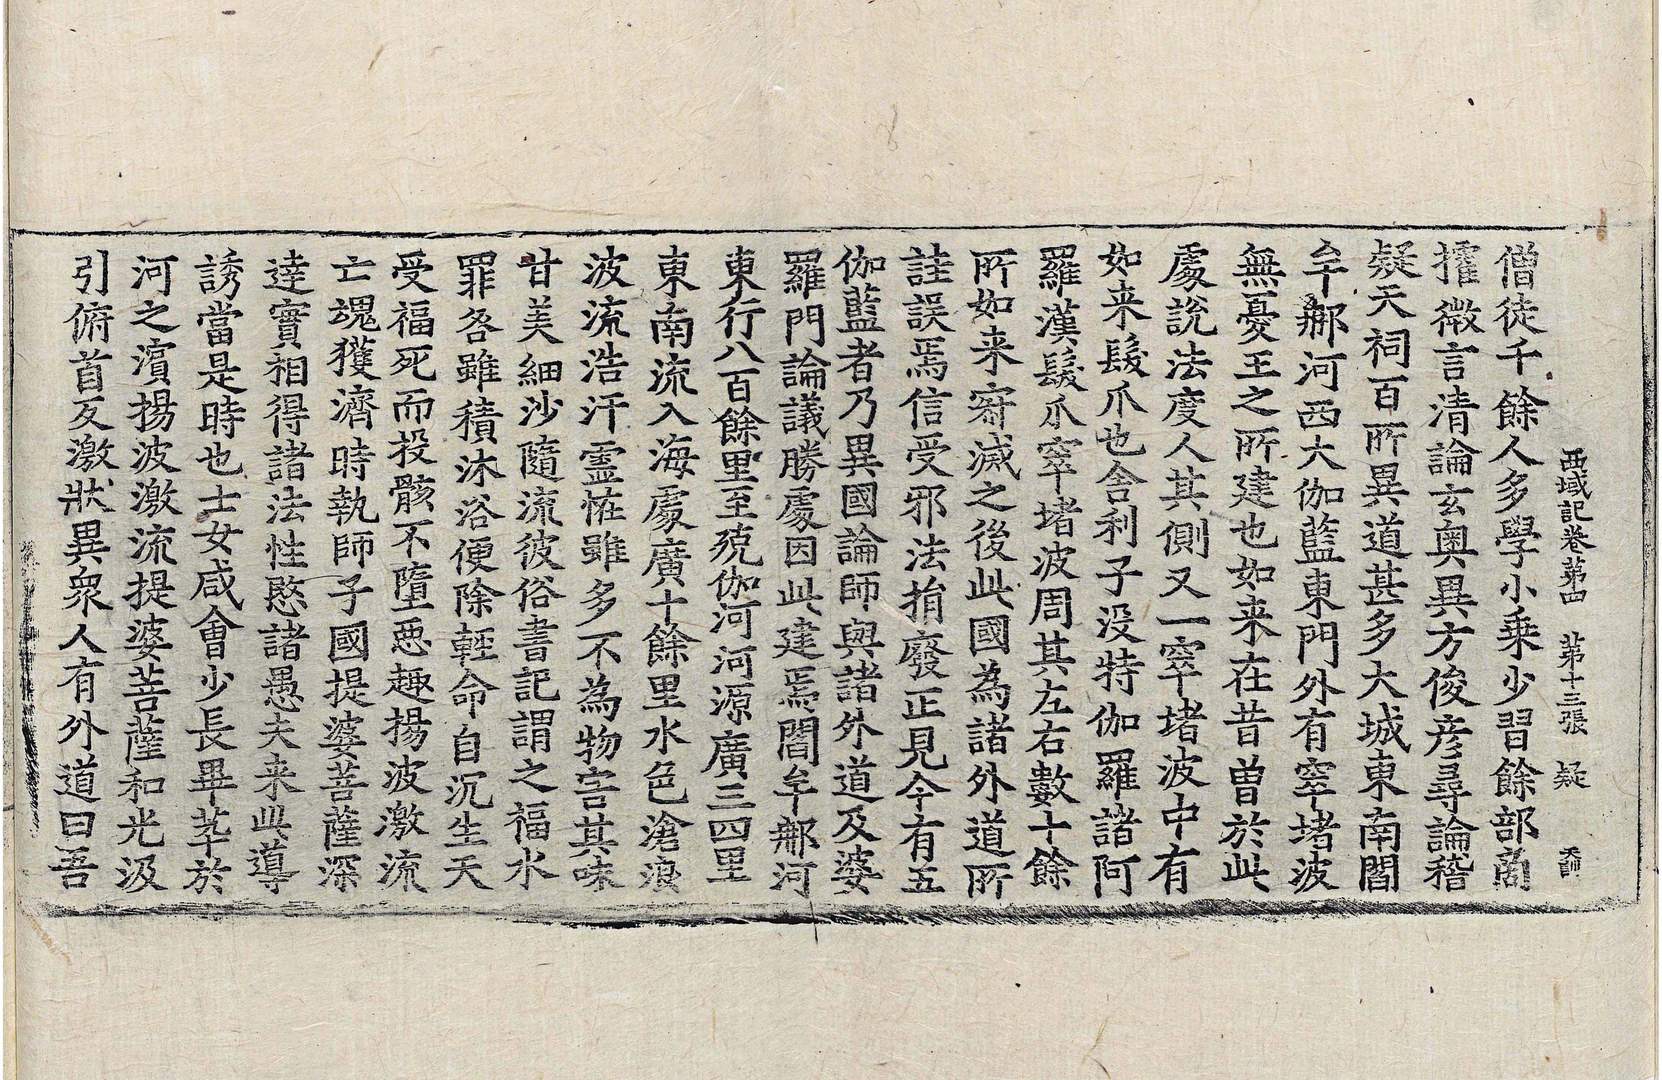 西域記卷第四 第十三張 疑
僧徒千餘人多學小乘少習餘部商
攉微言清論玄奧異方俊彦尋論稽
疑天祠百所異道甚多大城東南閻
牟那河西大伽藍東門外有窣堵波
無憂王之所建也如来在昔曽於此
處說法度人其側又一窣堵波中有
如来髮爪也舎利子没特伽羅諸阿
羅漢髮爪窣堵波周其左右數十餘
所如来寂滅之後此國為諸外道所
詿誤焉信受邪法捐廢正見今有五
伽藍者乃異國論師與諸外道及婆
羅門論議勝處因此建焉閻牟那河
東行八百餘里至殑伽河河源廣三四里
東南流入海處廣十餘里水色滄浪
波流浩汗靈恠雖多不為物害其味
甘美細沙隨流彼俗書記謂之福水
罪咎雖積沐浴便除輕命自沉生天
受福死而投骸不墮惡趣揚波激流
亡魂獲濟時執師子國提婆菩薩深
達實相得諸法性愍諸愚夫来此導
誘當是時也士女咸會少長畢萃於
河之濵揚波激流提婆菩薩和光汲
引俯首反激狀異衆人有外道曰吾